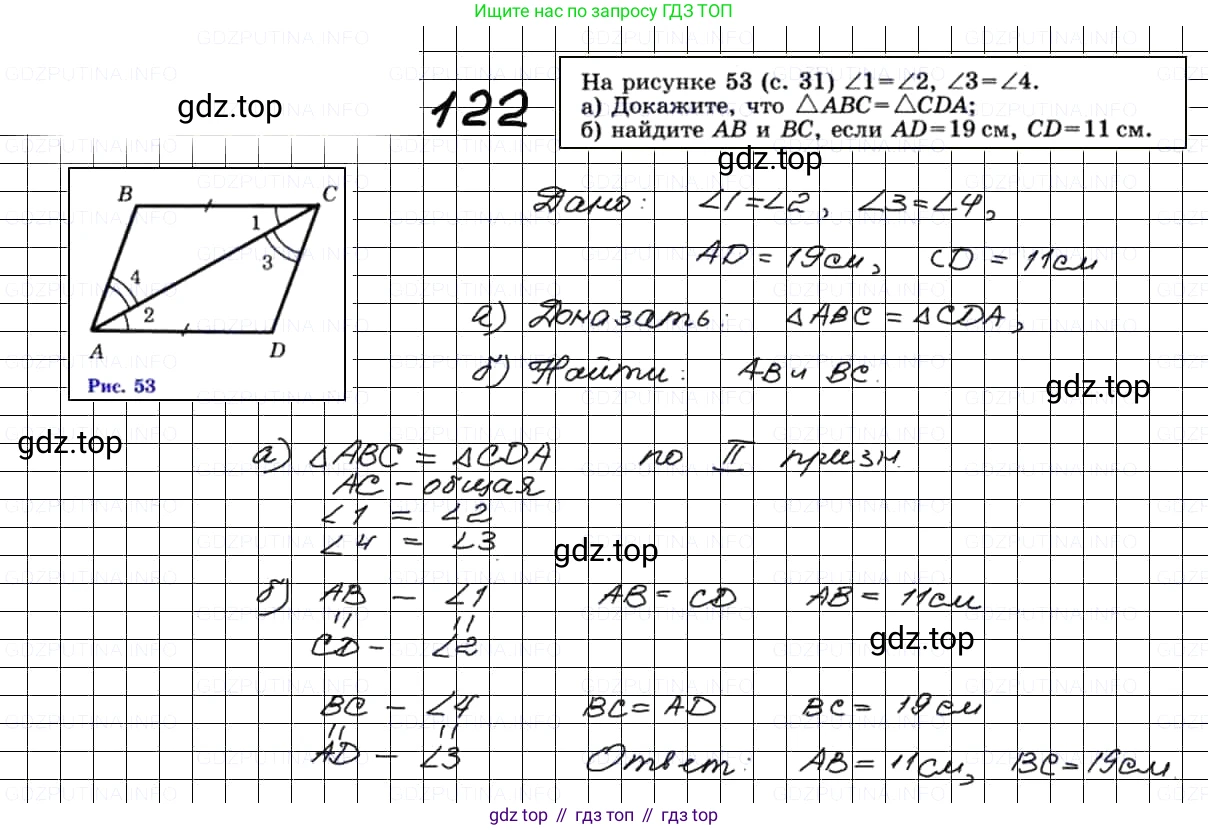 Ищите нас по запросу ГДЗ ТОП
gdz.top
122
На рисунке 53 (с. 31) ∠1=∠2, ∠3=∠4.
а) Докажите, что △ABC=△CDA;
б) найдите AB и BC, если AD=19 см, CD=11 см.
gdz.top
B C
1
3
4
2
A D
Рис. 53
Дано: ∠1=∠2, ∠3=∠4,
AD = 19см, CD = 11см
а) Доказать: △ABC = △CDA;
б) Найти: AB и BC.
gdz.top
gdz.top
а) △ABC = △CDA по II призн.
AC – общая
∠1 = ∠2
∠4 = ∠3
gdz.top
б) AB – ∠1 AB = CD AB = 11см
= =
CD – ∠2
gdz.top
BC – ∠4 BC = AD BC = 19см
= =
AD – ∠3 Ответ: AB = 11см, BC = 19см.
gdz top // гдз топ // gdz top
GDZPUTINA.INFO